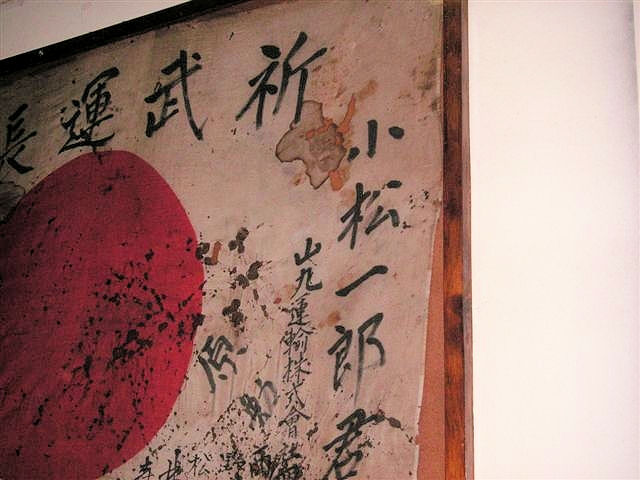 祈武運長
小松一郎君
山九運輸株式會社
原
松野